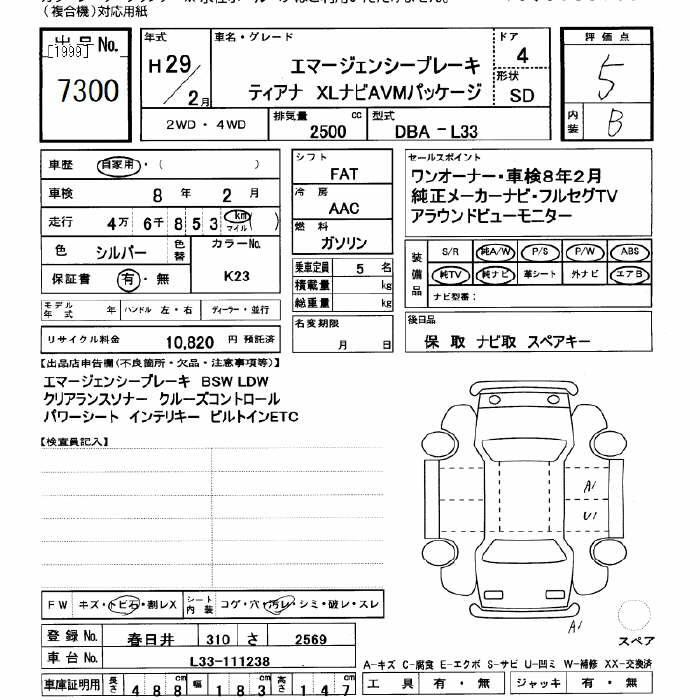 (複合機)対応用紙
出品 No.
[1999]
7300
年式
H29/2月
車名・グレード
エマージェンシーブレーキ
ティアナ XLナビAVMパッケージ
ドア
4
形状
SD
2WD・4WD
排気量 cc
2500
型式
DBA-L33
評価点
5
内装
B
車歴 自家用・( )
車検 8 年 2 月
走行 4万 6千 8 5 3 km マイル ( )
色 シルバー 色替 カラーNo.
保証書 有・無 K23
モデル年式 年 ハンドル 左・右 ディーラー・並行
リサイクル料金 10,820 円 預託済
シフト
FAT
冷房
AAC
燃料
ガソリン
乗車定員 5 名
積載量 kg
総重量 kg
名変期限
月 日
セールスポイント
ワンオーナー・車検8年2月
純正メーカーナビ・フルセグTV
アラウンドビューモニター
装備品 S/R 純A/W P/S P/W ABS
純TV 純ナビ 革シート 外ナビ エアB
ナビ型番:
後日品
保 取 ナビ取 スペアキー
【出品店申告欄(不良箇所・欠品・注意事項等)】
エマージェンシーブレーキ BSW LDW
クリアランスソナー クルーズコントロール
パワーシート インテリキー ビルトインETC
【検査員記入】
A1
U1
A1
スペア
FW キズ・トビ石・割レX シート内装 コゲ・穴・汚レ・シミ・破レ・スレ
登録 No. 春日井 310 さ 2569
車台 No. L33-111238
車庫証明用 長さ 488 cm 幅 183 cm 高さ 147 cm
A-キズ C-腐食 E-エクボ S-サビ U-凹ミ W-補修 XX-交換済
工具 有・無 ジャッキ 有・無